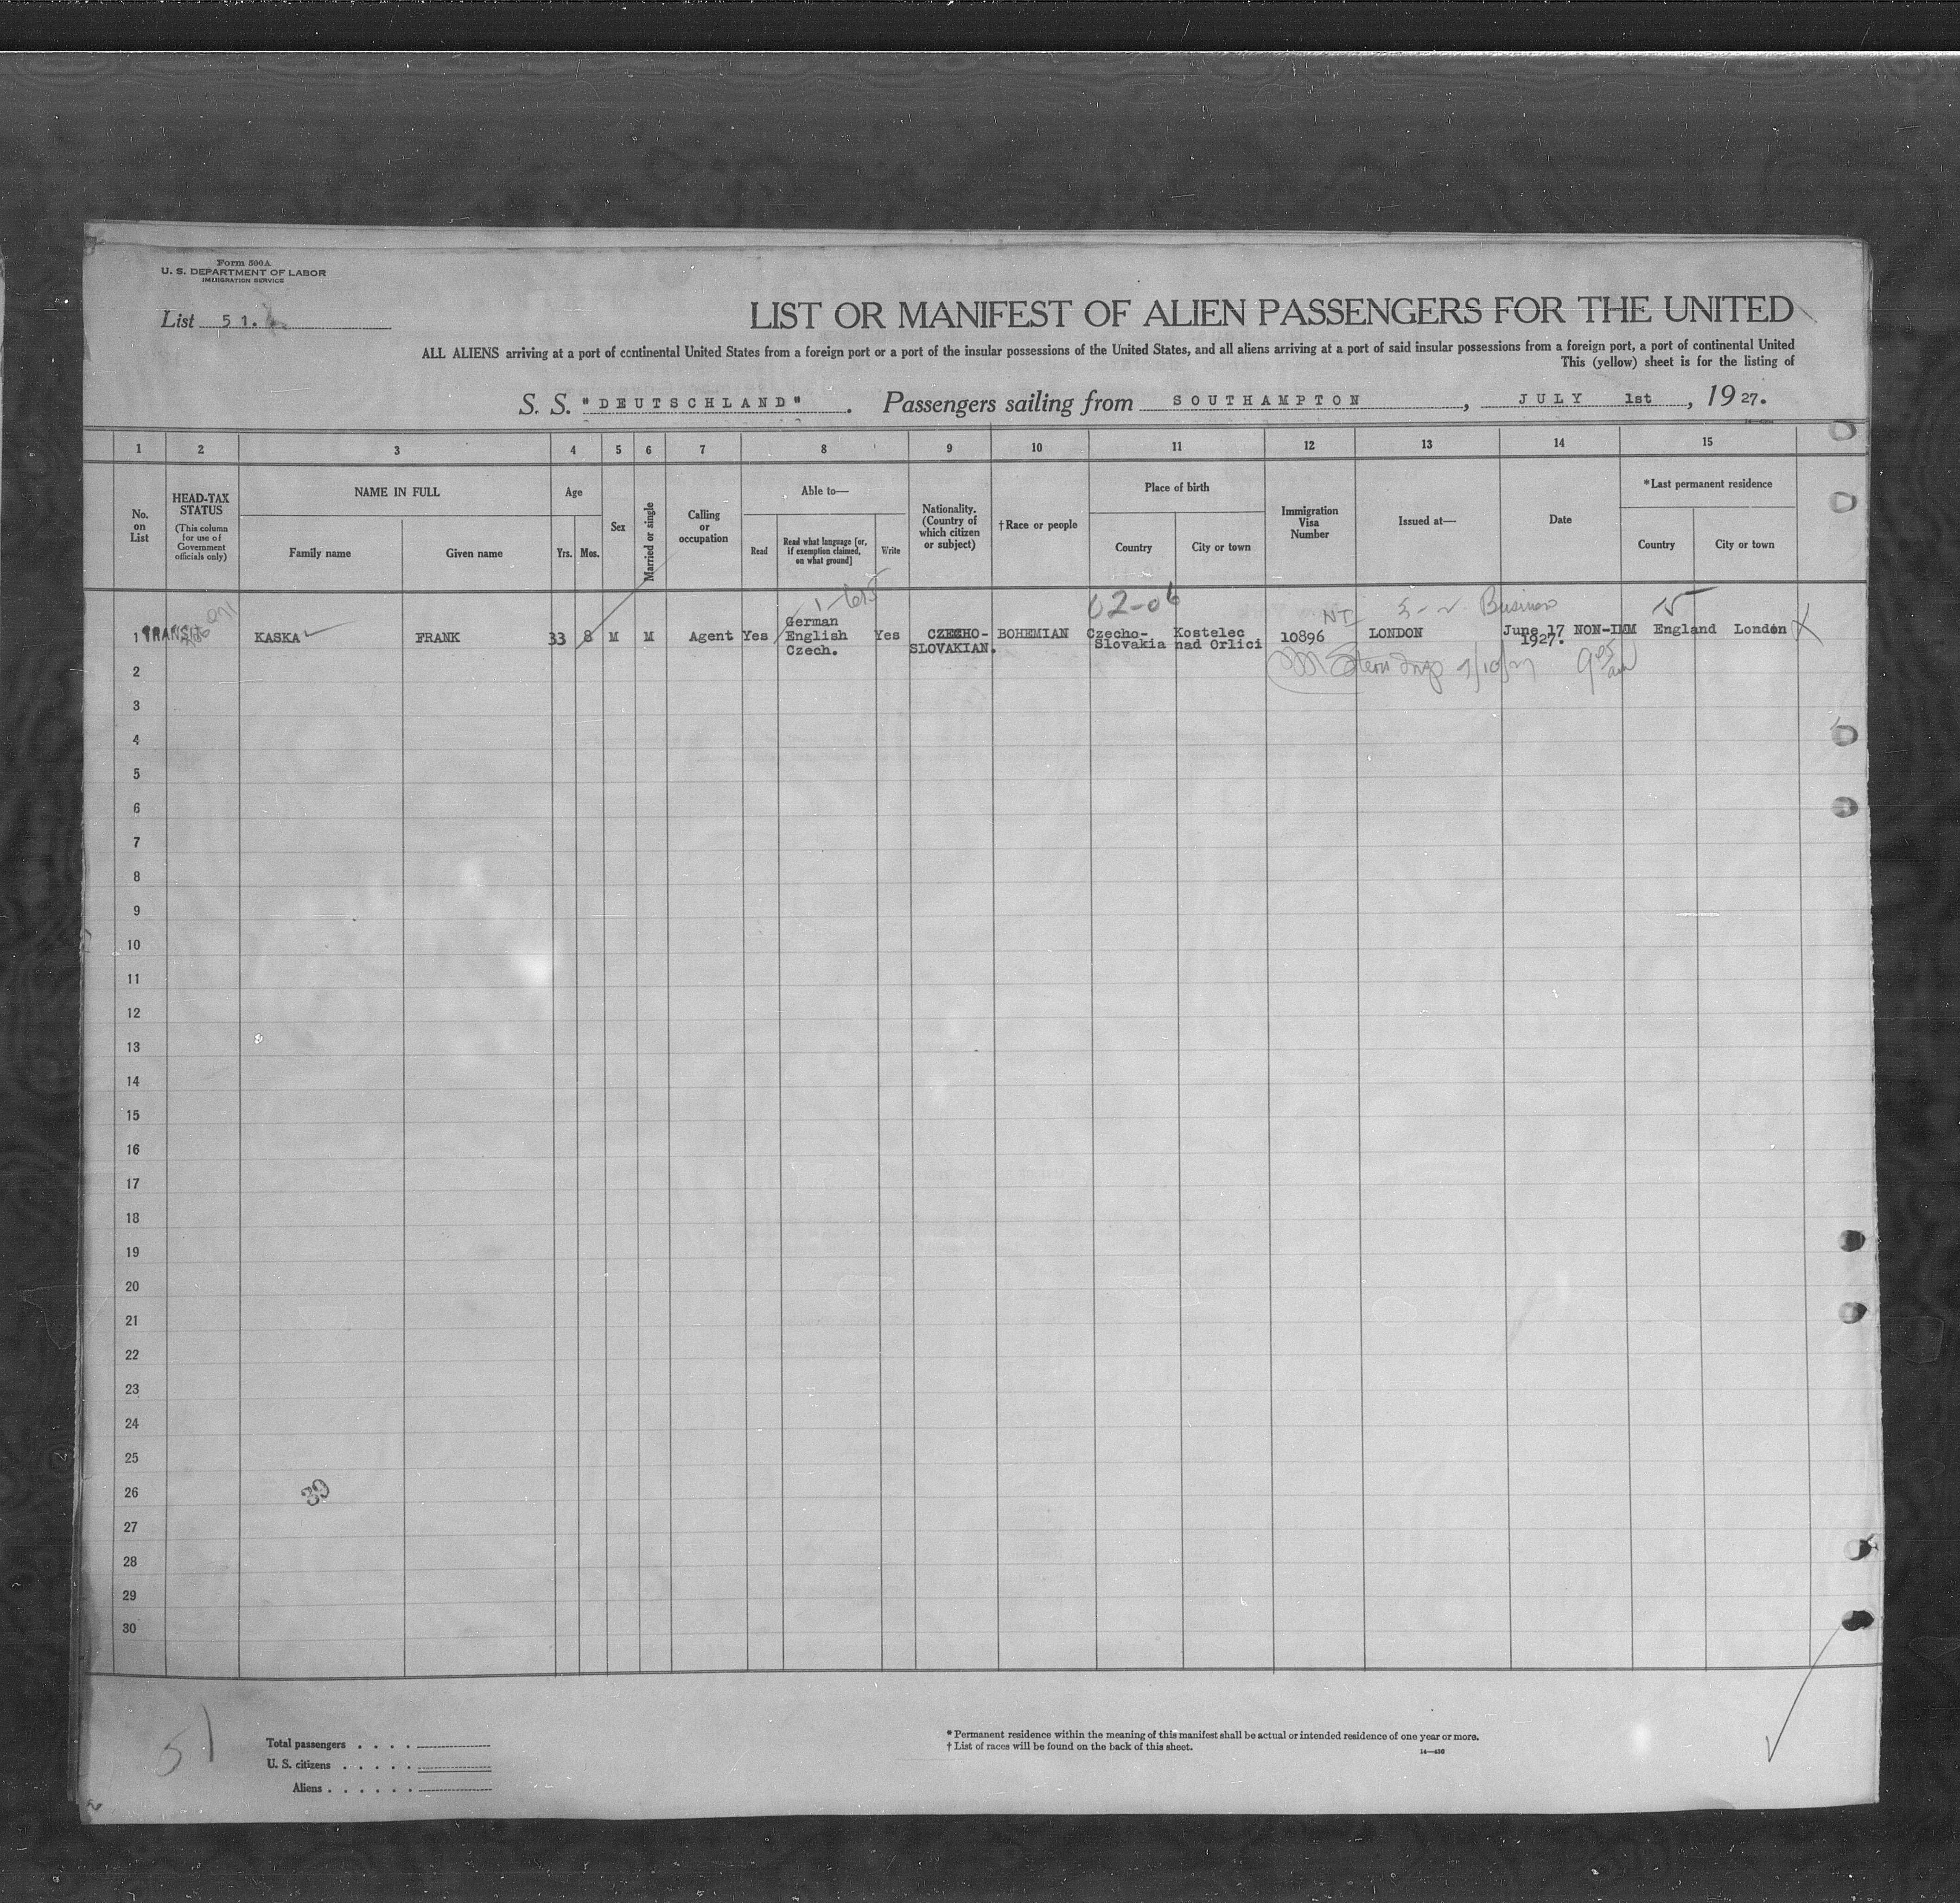 Form 500A
U. S. DEPARTMENT OF LABOR
IMMIGRATION SERVICE
List 51.
LIST OR MANIFEST OF ALIEN PASSENGERS FOR THE UNITED
ALL ALIENS arriving at a port of continental United States from a foreign port or a port of the insular possessions of the United States, and all aliens arriving at a port of said insular possessions from a foreign port, a port of continental United
This (yellow) sheet is for the listing of
S. S. "DEUTSCHLAND". Passengers sailing from SOUTHAMPTON, JULY 1st, 1927.
1 2 3 4 5 6 7 8 9 10 11 12 13 14 15
No. on List
HEAD-TAX STATUS
(This column for use of Government officials only)
NAME IN FULL
Family name
Given name
Age
Yrs.
Mos.
Sex
Married or single
Calling or occupation
Able to—
Read
Read what language [or, if exemption claimed, on what ground]
Write
Nationality. (Country of which citizen or subject)
†Race or people
Place of birth
Country
City or town
Immigration Visa Number
Issued at—
Date
*Last permanent residence
Country
City or town
02-06 NI Business
1 TRANSIT KASKA FRANK 33 8 M M Agent Yes German English Czech. Yes CZECHO-SLOVAKIAN. BOHEMIAN Czecho-Slovakia Kostelec nad Orlici 10896 LONDON June 17 1927. NON-IMM England London
2
3
4
5
6
7
8
9
10
11
12
13
14
15
16
17
18
19
20
21
22
23
24
25
26
39
27
28
29
30
51
Total passengers . . . .
U. S. citizens . . . . .
Aliens . . . . . .
* Permanent residence within the meaning of this manifest shall be actual or intended residence of one year or more.
† List of races will be found on the back of this sheet.
14—430